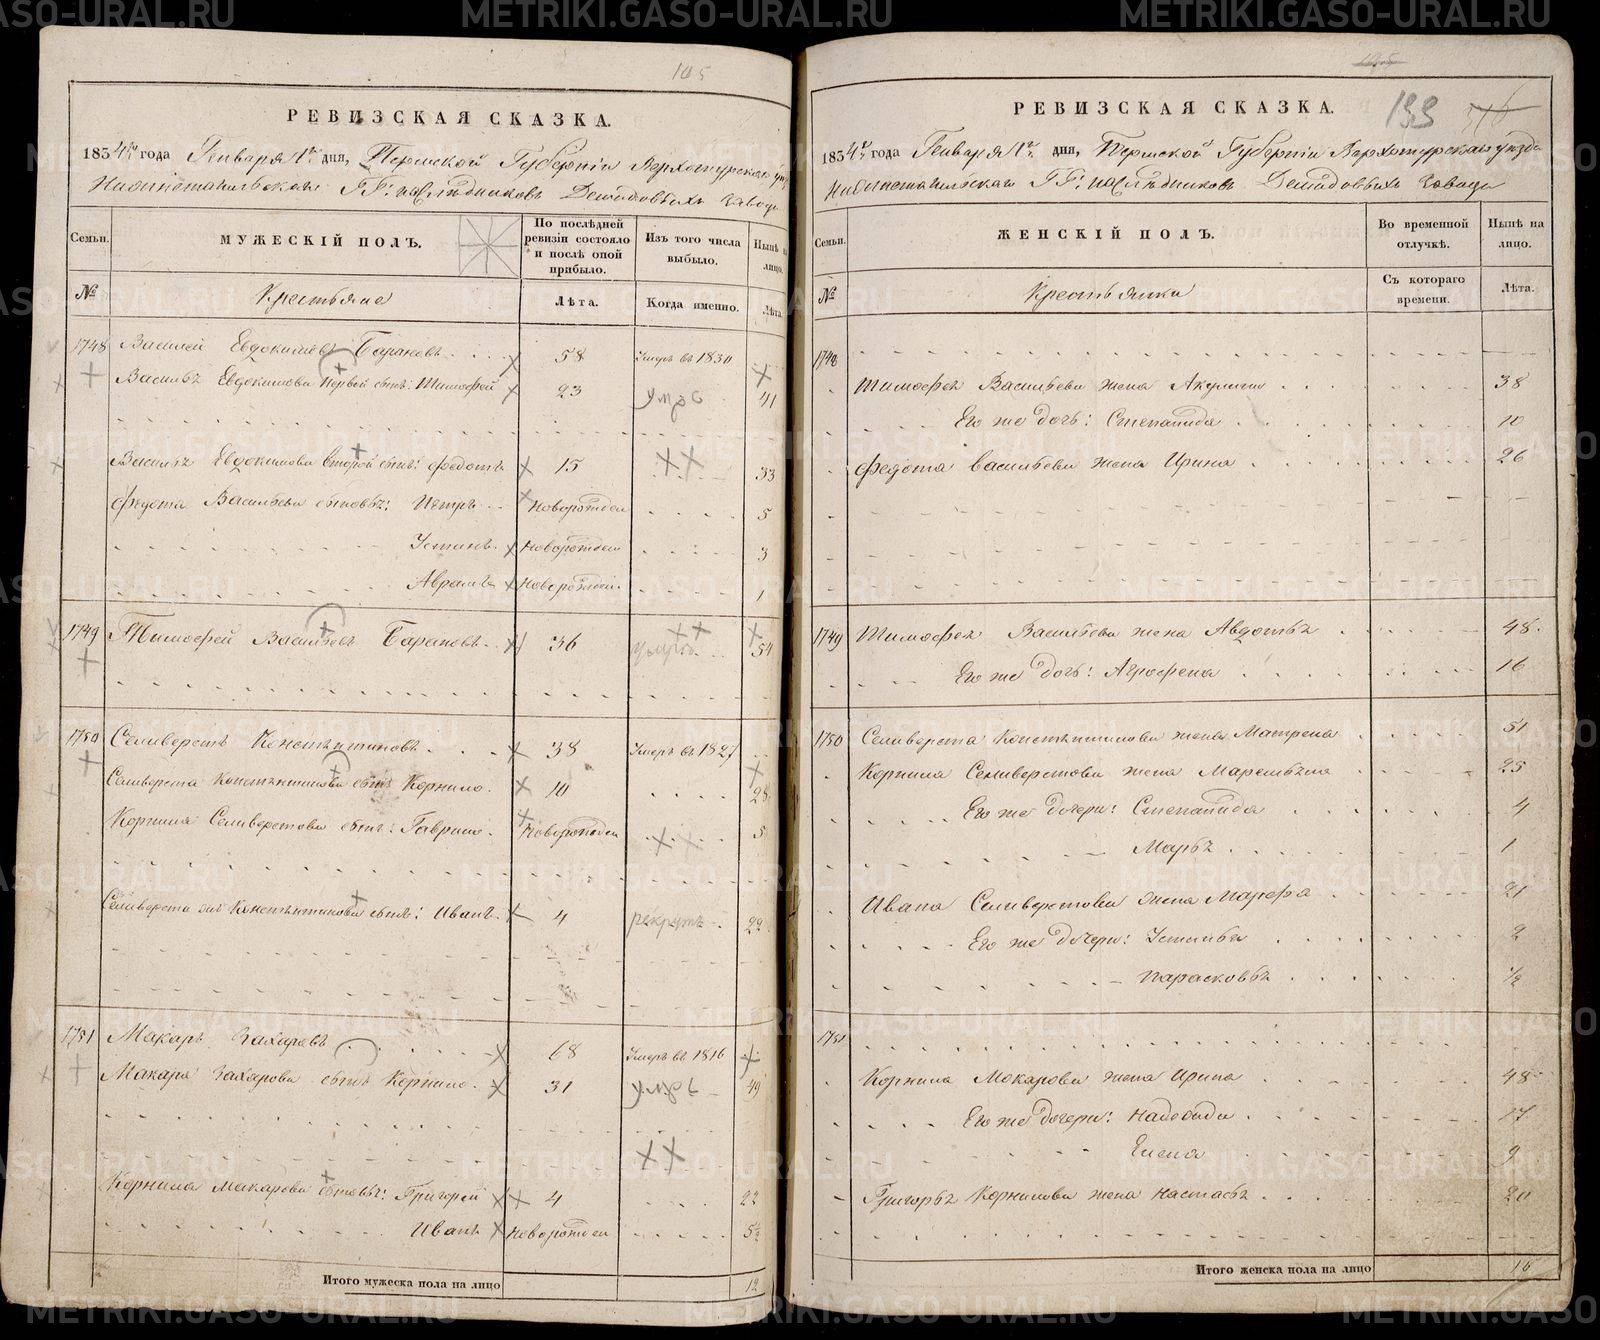 105
РЕВИЗСКАЯ СКАЗКА.
1834го года Генваря 1го дня, Пермской Губерніи Верхотурскаго уѣз
Нижнетагильскаго ГГ: наслѣдниковъ Демидовыхъ завода
Семьи.
МУЖЕСКІЙ ПОЛЪ.
По послѣдней ревизіи состояло и послѣ оной прибыло.
Изъ того числа выбыло.
Нынѣ на лицо.
№
Крестьяне
Лѣта.
Когда именно.
Лѣта.
1748 Василей Евдокимовъ Барановъ 58 Умеръ въ 1830
Василья Евдокимова Первой сынъ: Тимофей 23 умеръ 41
Василья Евдокимова второй сынъ: Федотъ 15 33
Федота Васильева сыновья: Петръ Новорожден 5
Устинъ Новорожден 3
Авраамъ Новорожден 1
1749 Тимофей Васильевъ Барановъ 36 умеръ 54
1750 Селиверстъ Константиновъ 38 Умеръ въ 1827
Селиверста Константинова сынъ Корнило 10 28
Корнила Селиверстова сынъ: Гаврило Новорожден 5
Селиверста Константинова сынъ: Иванъ 4 рекрутъ 22
1751 Макаръ Захаровъ 68 Умеръ въ 1816
Макара Захарова сынъ Корнило 31 умеръ 49
Корнила Макарова сыновья: Григорей 4 22
Иванъ Новорожден 5½
Итого мужеска пола на лицо 12
133
РЕВИЗСКАЯ СКАЗКА.
1834го года Генваря 1го дня, Пермской Губерніи Верхотурскаго уѣзда
Нижнетагильскаго ГГ: наслѣдниковъ Демидовыхъ завода
Семьи.
ЖЕНСКІЙ ПОЛЪ.
Во временной отлучкѣ.
Нынѣ на лицо.
№
Крестьянки
Съ котораго времени.
Лѣта.
1748
Тимофея Васильева жена Акулина 38
Его же дочь: Степанида 10
Федота васильева жена Ирина 26
1749 Тимофея Васильева жена Авдотья 48
Его же дочь: Агрофена 16
1750 Селиверста Константинова жена Матрена 51
Корнила Селиверстова жена Маремьяна 25
Его же дочери: Степанида 4
Марья 1
Ивана Селиверстова жена Марфа 21
Его же дочери: Устинья 2
Парасковья ½
1751
Корнила Макарова жена Ирина 48
Его же дочери: Надежда 17
Елена 9
Григорья Корнилова жена Настасья 20
Итого женска пола на лицо 16
METRIKI.GASO-URAL.RU